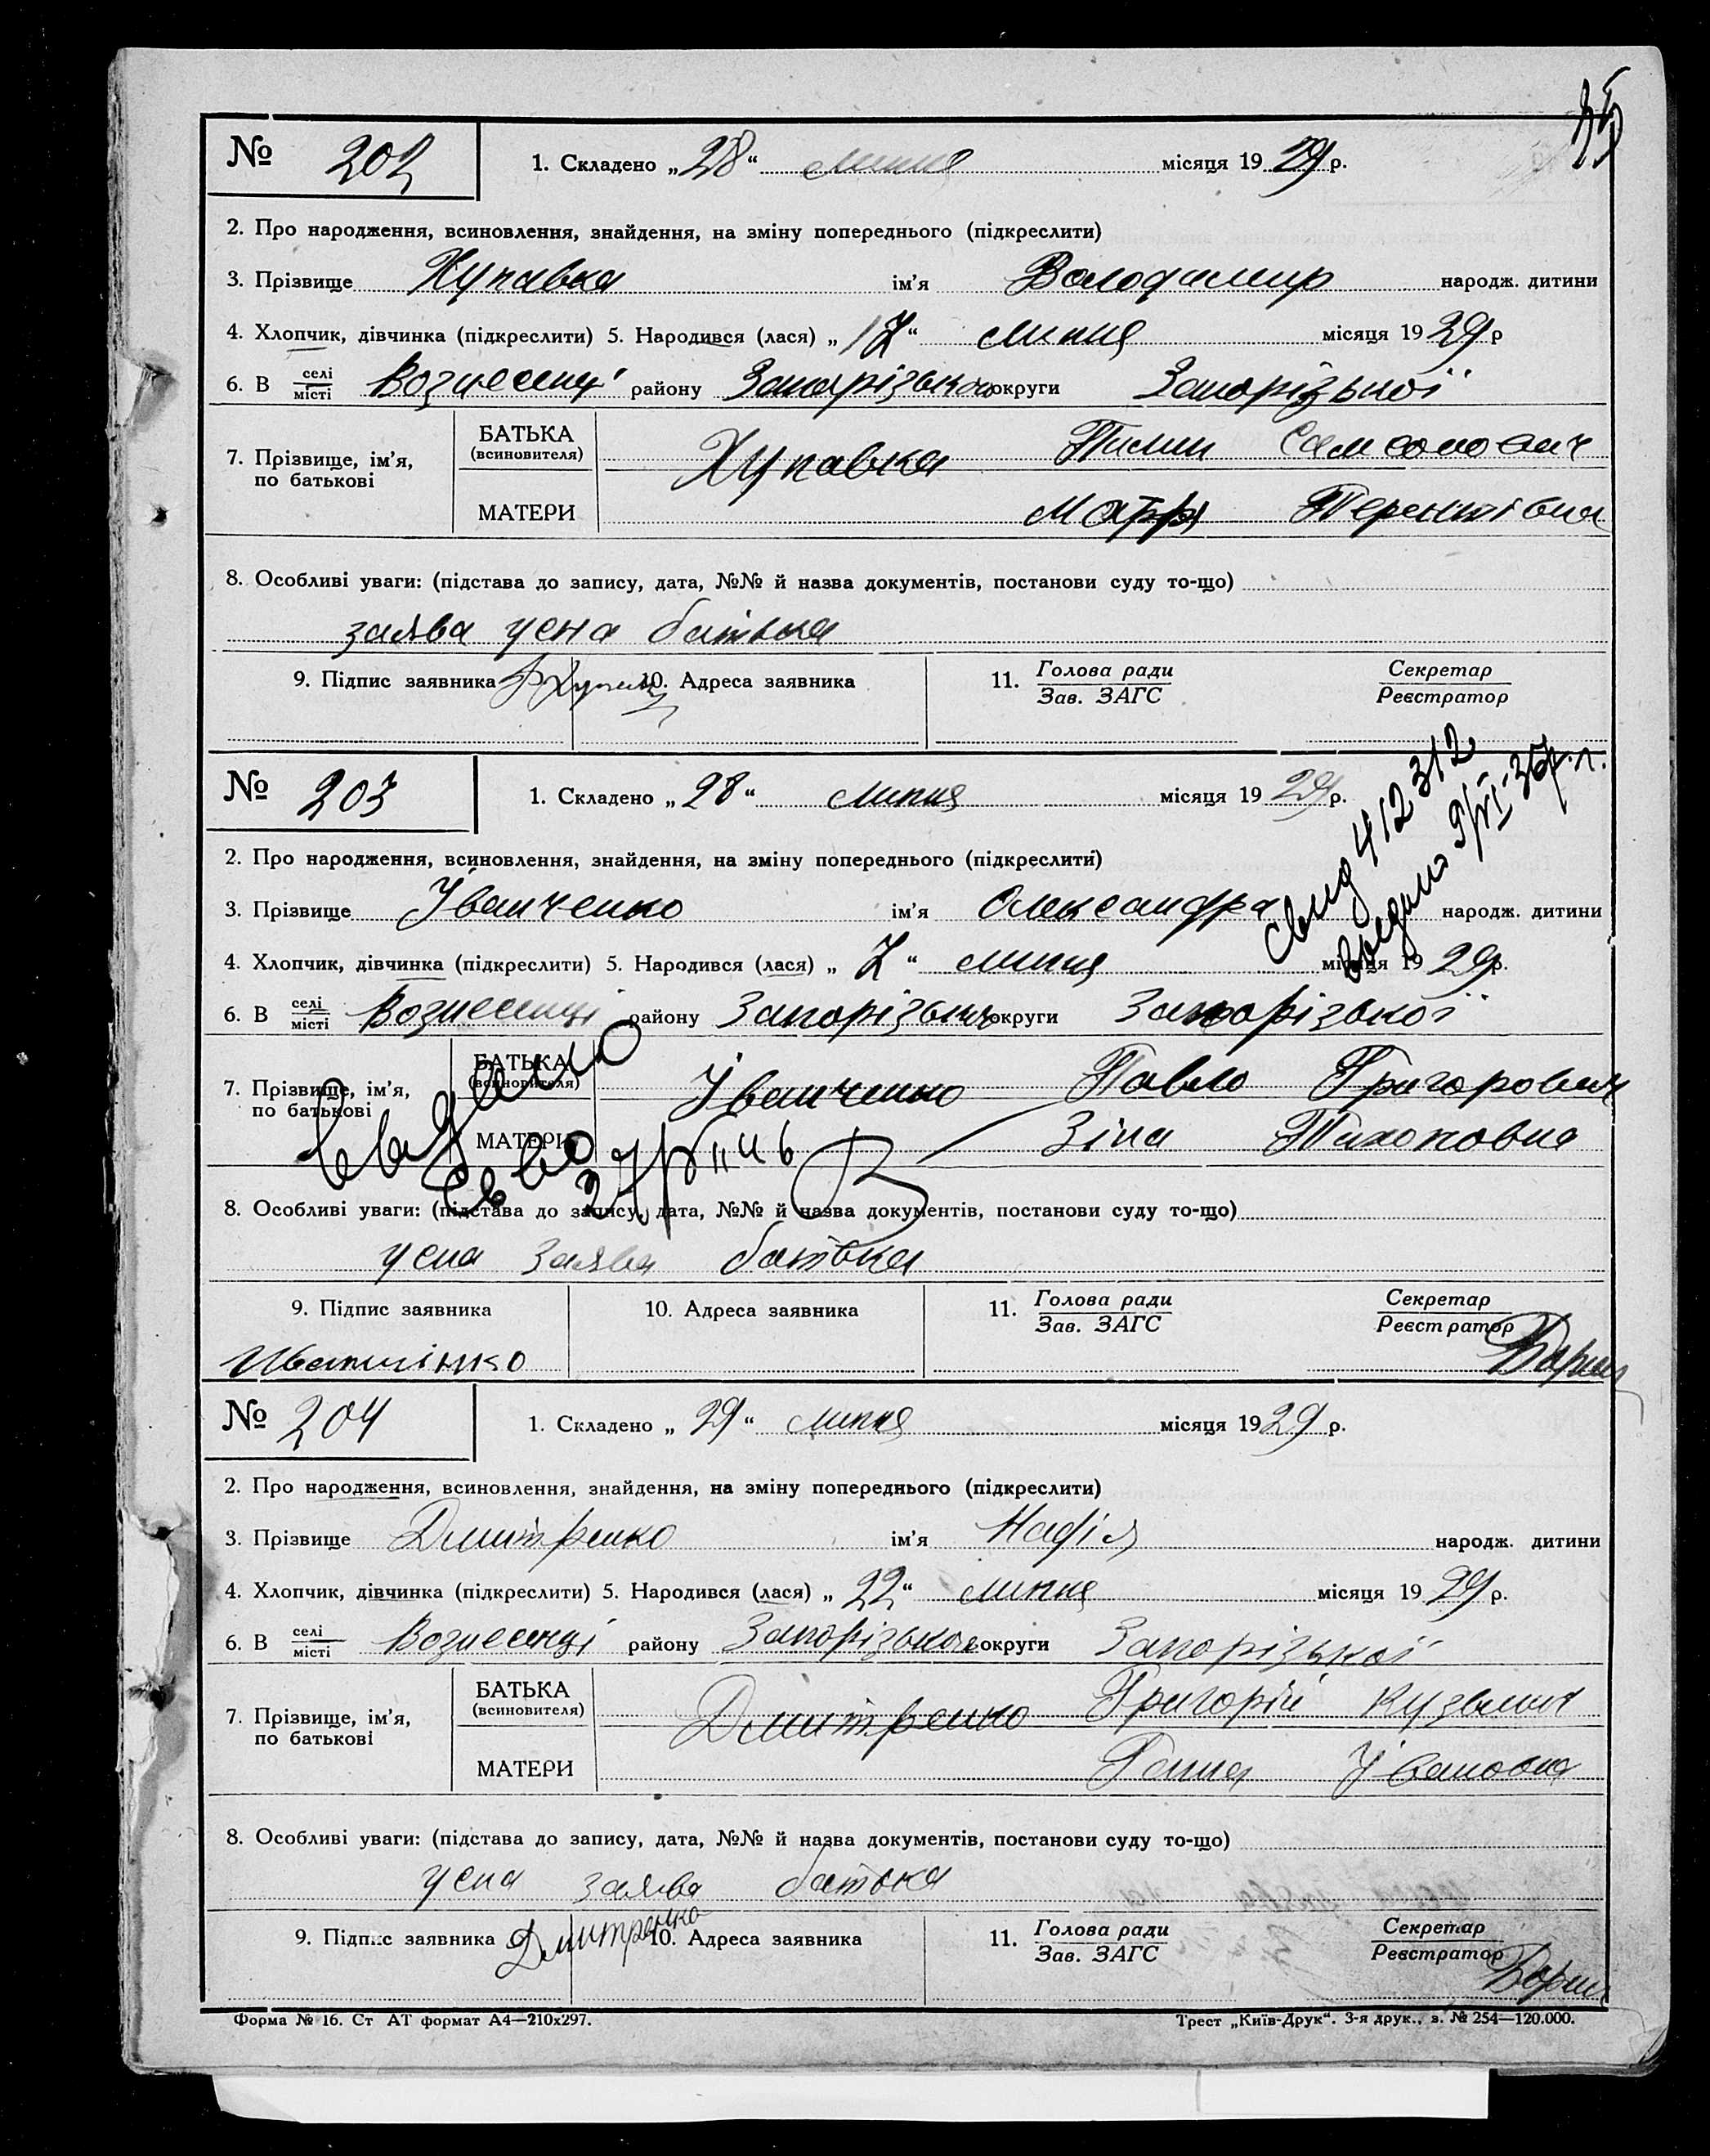 № 202 1. Складено „28“ липня місяця 1929 р.
2. Про народження, всиновлення, знайдення, на зміну попереднього (підкреслити)
3. Прізвище Хупавка ім'я Володимир народж. дитини
4. Хлопчик, дівчинка (підкреслити) 5. Народився (лася) „17“ липня місяця 1929 р
6. В селі місті Вознесенці району Запорізького округи Запорізької
7. Прізвище, ім'я, по батькові
БАТЬКА (всиновителя) Хупавка Пилип Самсонович
МАТЕРИ Марфа Терентівна
8. Особливі уваги: (підстава до запису, дата, №№ й назва документів, постанови суду то-що)
заява усна батька
9. Підпис заявника 10. Адреса заявника 11. Голова ради Секретар
Зав. ЗАГС Реєстратор
№ 203 1. Складено „28“ липня місяця 1929 р.
2. Про народження, всиновлення, знайдення, на зміну попереднього (підкреслити)
3. Прізвище Іванченко ім'я Олександра народж. дитини
412312
4. Хлопчик, дівчинка (підкреслити) 5. Народився (лася) „7“ липня місяця 1929 р.
6. В селі місті Вознесенці району Запорізького округи Запорізької
7. Прізвище, ім'я, по батькові
БАТЬКА (всиновителя) Іванченко Павло Григорович
МАТЕРИ Зіна Тихоновна
8. Особливі уваги: (підстава до запису, дата, №№ й назва документів, постанови суду то-що)
усна заява батька
9. Підпис заявника 10. Адреса заявника 11. Голова ради Секретар
Зав. ЗАГС Реєстратор
№ 204 1. Складено „29“ липня місяця 1929 р.
2. Про народження, всиновлення, знайдення, на зміну попереднього (підкреслити)
3. Прізвище Дмитренко ім'я Надія народж. дитини
4. Хлопчик, дівчинка (підкреслити) 5. Народився (лася) „22“ липня місяця 1929 р.
6. В селі місті Вознесенці району Запорізького округи Запорізької
7. Прізвище, ім'я, по батькові
БАТЬКА (всиновителя) Дмитренко Григорій Кузьмич
МАТЕРИ Ганна Івановна
8. Особливі уваги: (підстава до запису, дата, №№ й назва документів, постанови суду то-що)
усна заява батька
9. Підпис заявника Дмитренко 10. Адреса заявника 11. Голова ради Секретар
Зав. ЗАГС Реєстратор
Форма № 16. Ст АТ формат А4—210х297. Трест „Київ-Друк“. 3-я друк., з. № 254—120.000.